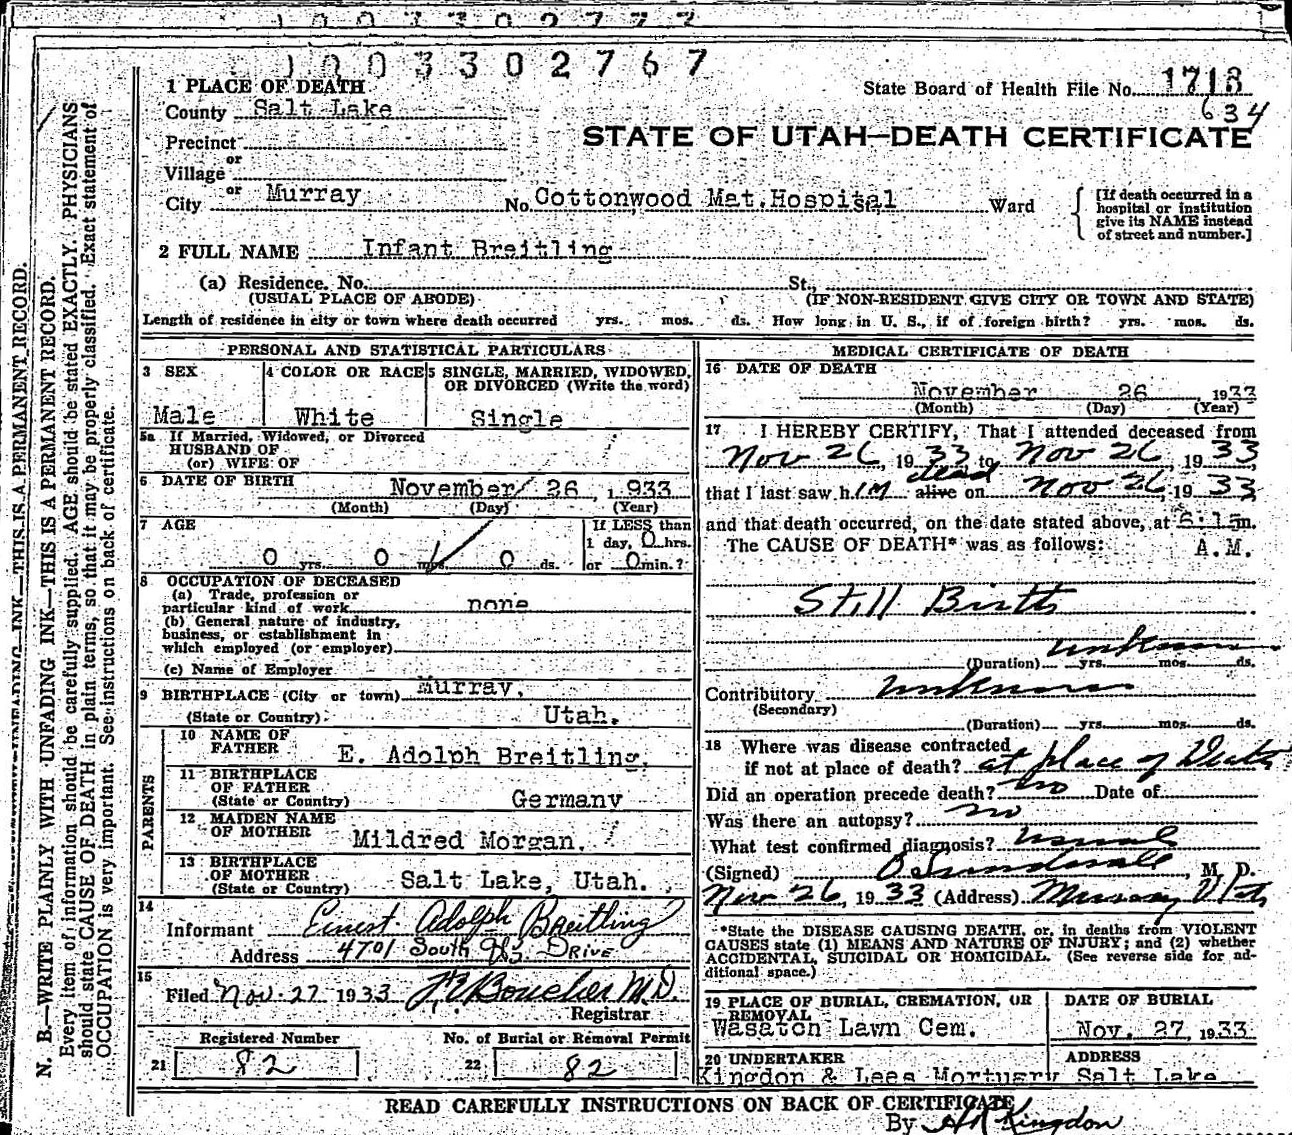 1 0 0 3 3 0 2 7 7 7
1 0 0 3 3 0 2 7 6 7
1 PLACE OF DEATH
State Board of Health File No. 1718
634
County Salt Lake
STATE OF UTAH—DEATH CERTIFICATE
Precinct
or
Village
or
City Murray No. Cottonwood Mat. Hospital Ward
[If death occurred in a
hospital or institution
give its NAME instead
of street and number.]
2 FULL NAME Infant Breitling
(a) Residence. No. St.,
(USUAL PLACE OF ABODE) (IF NON-RESIDENT GIVE CITY OR TOWN AND STATE)
Length of residence in city or town where death occurred yrs. mos. ds. How long in U. S., if of foreign birth? yrs. mos. ds.
PERSONAL AND STATISTICAL PARTICULARS
3 SEX
Male
4 COLOR OR RACE
White
5 SINGLE, MARRIED, WIDOWED,
OR DIVORCED (Write the word)
Single
5a If Married, Widowed, or Divorced
HUSBAND OF
(or) WIFE OF
6 DATE OF BIRTH November 26, 1933
(Month) (Day) (Year)
7 AGE
0 yrs. 0 mos. 0 ds.
If LESS than
1 day, 0 hrs.
or 0 min.?
8 OCCUPATION OF DECEASED
(a) Trade, profession or
particular kind of work none
(b) General nature of industry,
business, or establishment in
which employed (or employer)
(c) Name of Employer
9 BIRTHPLACE (City or town) Murray,
(State or Country) Utah.
PARENTS
10 NAME OF
FATHER E. Adolph Breitling.
11 BIRTHPLACE
OF FATHER
(State or Country) Germany
12 MAIDEN NAME
OF MOTHER Mildred Morgan.
13 BIRTHPLACE
OF MOTHER
(State or Country) Salt Lake, Utah.
14
Informant Ernest Adolph Breitling
Address 4701 South Drive
15
Filed Nov. 27 1933 Boucher M.D.
Registrar
Registered Number No. of Burial or Removal Permit
21 82 22 82
MEDICAL CERTIFICATE OF DEATH
16 DATE OF DEATH
November 26, 1933
(Month) (Day) (Year)
17 I HEREBY CERTIFY, That I attended deceased from
Nov 26, 1933 to Nov 26, 1933
dead
that I last saw h im alive on Nov 26 1933
and that death occurred, on the date stated above, at 6:15 m.
The CAUSE OF DEATH* was as follows: A.M.
Still Birth
unknown
(Duration) yrs. mos. ds.
Contributory unknown
(Secondary)
(Duration) yrs. mos. ds.
18 Where was disease contracted
if not at place of death? at place of Death
Did an operation precede death? no Date of
Was there an autopsy? no
What test confirmed diagnosis? usual
(Signed) Sundwall, M. D.
Nov 26, 1933 (Address) Murray Utah
*State the DISEASE CAUSING DEATH, or, in deaths from VIOLENT
CAUSES state (1) MEANS AND NATURE OF INJURY; and (2) whether
ACCIDENTAL, SUICIDAL OR HOMICIDAL. (See reverse side for ad-
ditional space.)
19 PLACE OF BURIAL, CREMATION, OR
REMOVAL
Wasatch Lawn Cem.
DATE OF BURIAL
Nov. 27, 1933
20 UNDERTAKER
Kingdon & Lees Mortuary
ADDRESS
Salt Lake
READ CAREFULLY INSTRUCTIONS ON BACK OF CERTIFICATE
By Kingdon
N. B.—WRITE PLAINLY WITH UNFADING INK—THIS IS A PERMANENT RECORD.
Every item of information should be carefully supplied. AGE should be stated EXACTLY. PHYSICIANS
should state CAUSE OF DEATH in plain terms, so that it may be properly classified. Exact statement of
OCCUPATION is very important. See instructions on back of certificate.
INK—THIS IS A PERMANENT RECORD.